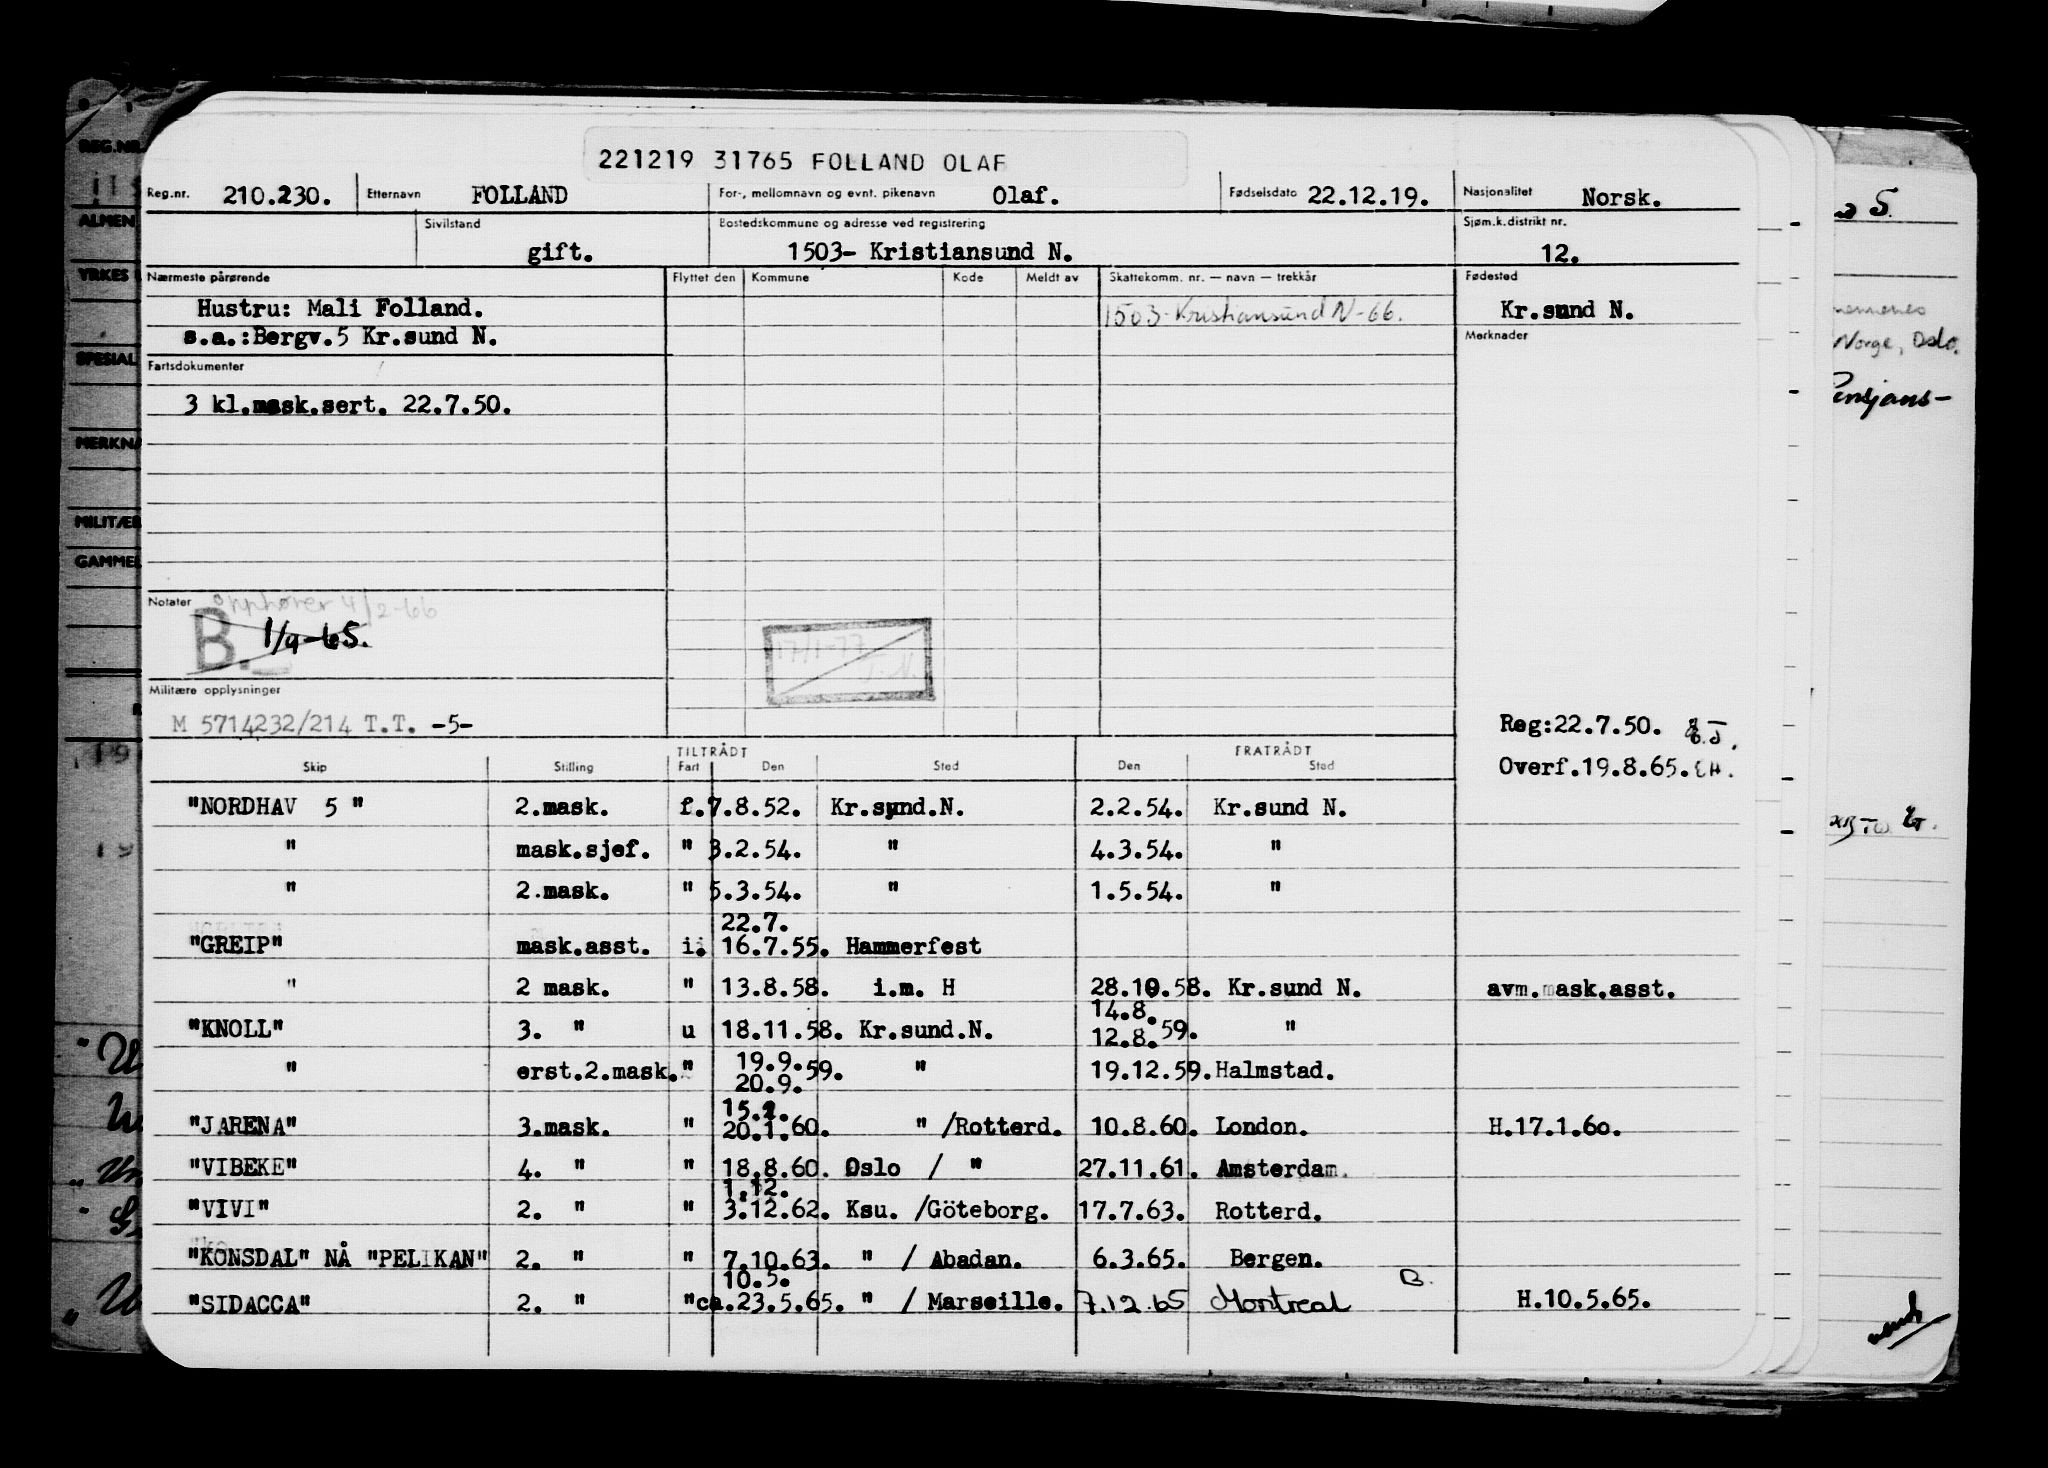 221219 31765 FOLLAND OLAF
Reg.nr. 210.230. Etternavn FOLLAND For-, mellomnavn og evnt. pikenavn Olaf. Fødselsdato 22.12.19. Nasjonalitet Norsk.
Sivilstand gift. Bostedskommune og adresse ved registrering 1503- Kristiansund N. Sjøm.k.distrikt nr. 12.
Nærmeste pårørende Flyttet den Kommune Kode Meldt av Skattekomm. nr. — navn — trekkår Fødested
Hustru: Mali Folland. 1503-Kristiansund N-66. Kr.sund N.
s.a.:Bergv.5 Kr.sund N. Merknader
Fartsdokumenter
3 kl.mask.sert. 22.7.50.
Notater opphører 4/2-66
B. 1/9-65.
17/1-77
Militære opplysninger
M 5714232/214 T.T. -5- Reg:22.7.50.
TILTRÅDT FRATRÅDT
Skip Stilling Fart Den Sted Den Sted Overf.19.8.65.
"NORDHAV 5 " 2.mask. f.7.8.52. Kr.sund.N. 2.2.54. Kr.sund N.
" mask.sjef. " 3.2.54. " 4.3.54. "
" 2.mask. " 5.3.54. " 1.5.54. "
22.7.
"GREIP" mask.asst. i. 16.7.55. Hammerfest
" 2 mask. " 13.8.58. i.m. H 28.10.58. Kr.sund N. avm.mask.asst.
14.8.
"KNOLL" 3. " u 18.11.58. Kr.sund.N. 12.8.59. "
19.9.
" erst.2.mask. " 20.9.59. " 19.12.59. Halmstad.
15.1.
"JARENA" 3.mask. " 20.1.60. " /Rotterd. 10.8.60. London. H.17.1.60.
"VIBEKE" 4. " " 18.8.60. Oslo / " 27.11.61. Amsterdam.
1.12.
"VIVI" 2. " " 3.12.62. Ksu. /Göteborg. 17.7.63. Rotterd.
"KONSDAL" NÅ "PELIKAN" 2. " " 7.10.63. " / Abadan. 6.3.65. Bergen.
10.5. B.
"SIDACCA" 2. " "ca.23.5.65. " / Marseille. 7.12.65 Montreal H.10.5.65.
REG.NR.
ALMEN
YRKES
SPESIAL
MERKNA
MILITÆR
GAMMEL
S.
Norge, Oslo.